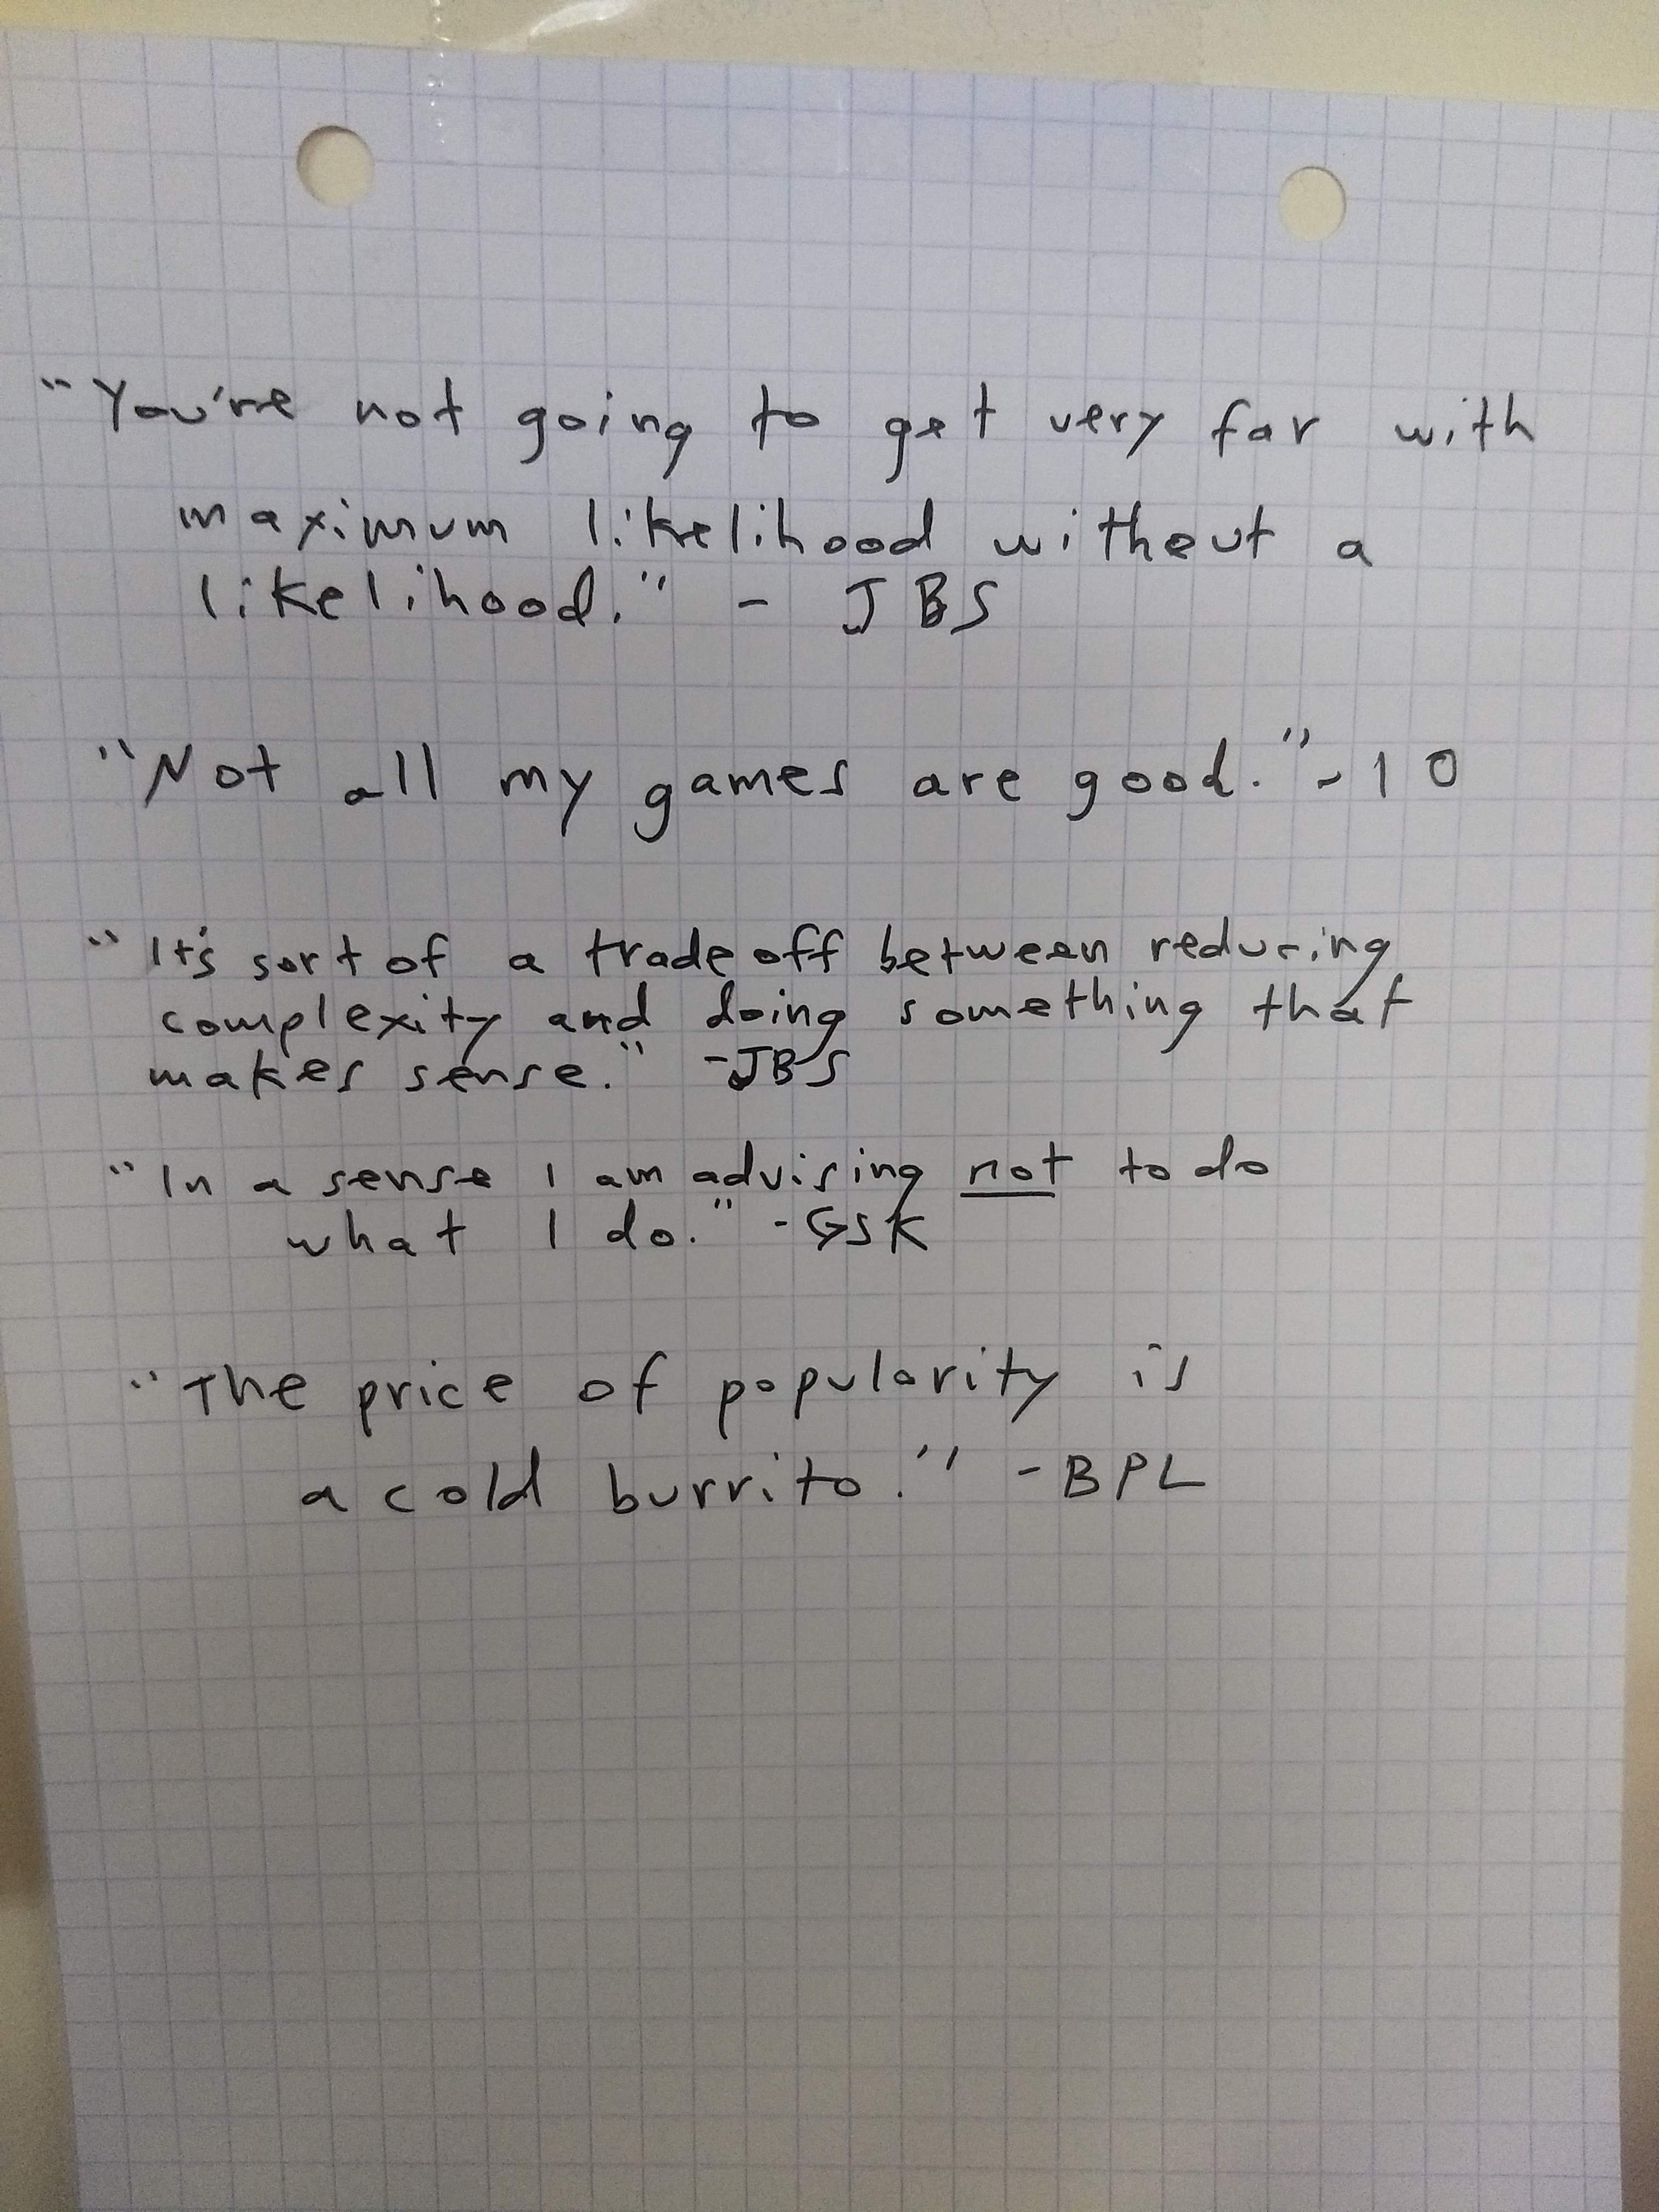 "You're not going to get very far with
maximum likelihood without a
likelihood." - JBS
"Not all my games are good." - 10
"It's sort of a trade off between reducing
complexity and doing something that
makes sense." -JBS
"In a sense I am advising not to do
what I do." -GSK
"The price of popularity is
a cold burrito." -BPL